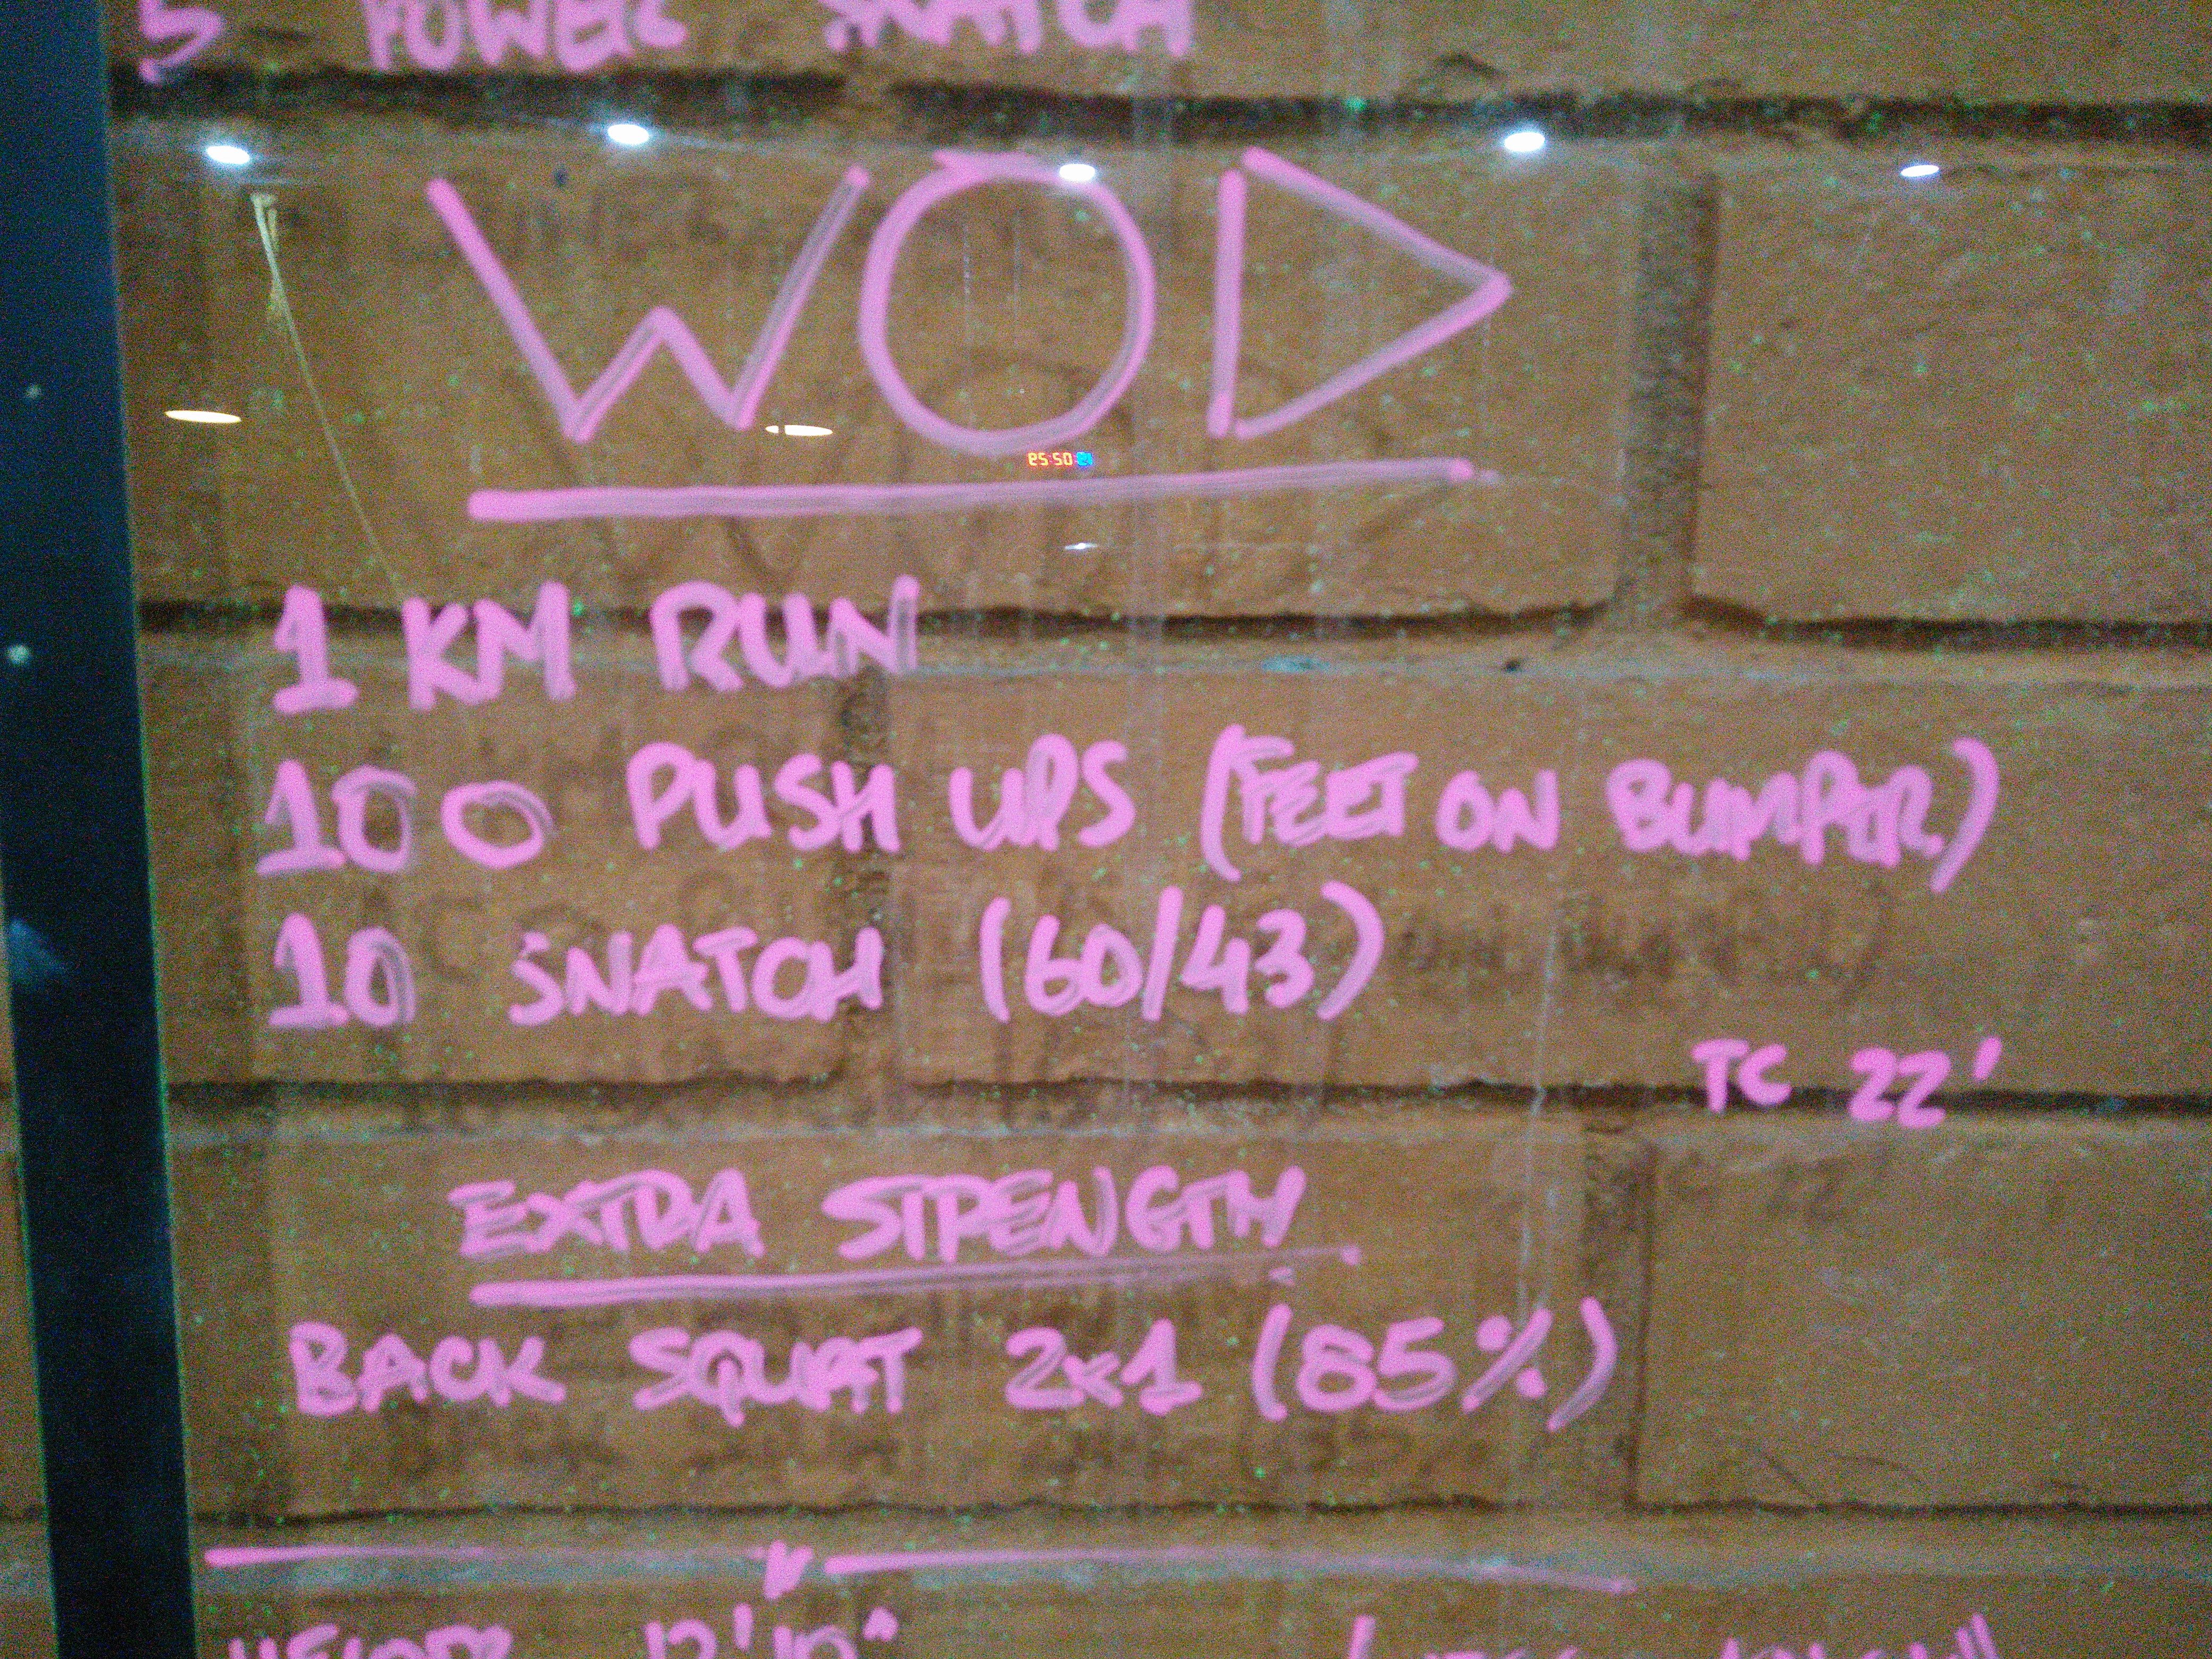 5 POWER SNATCH
WOD
1 KM RUN
100 PUSH UPS (FEET ON BUMPER)
10 SNATCH (60/43)
TC 22'
EXTRA STRENGTH
BACK SQUAT 2x1 (85%)
12'10"